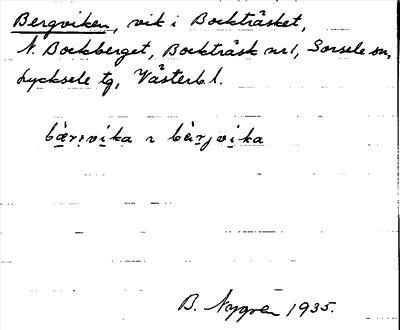 Bergviken, vik i Bockträsket,
N. Bockberget, Bockträsk nr 1, Sorsele sn,
Lycksele tg, Västerb. l.
bærvika ɿ bærjvika
B. Nygren 1935.